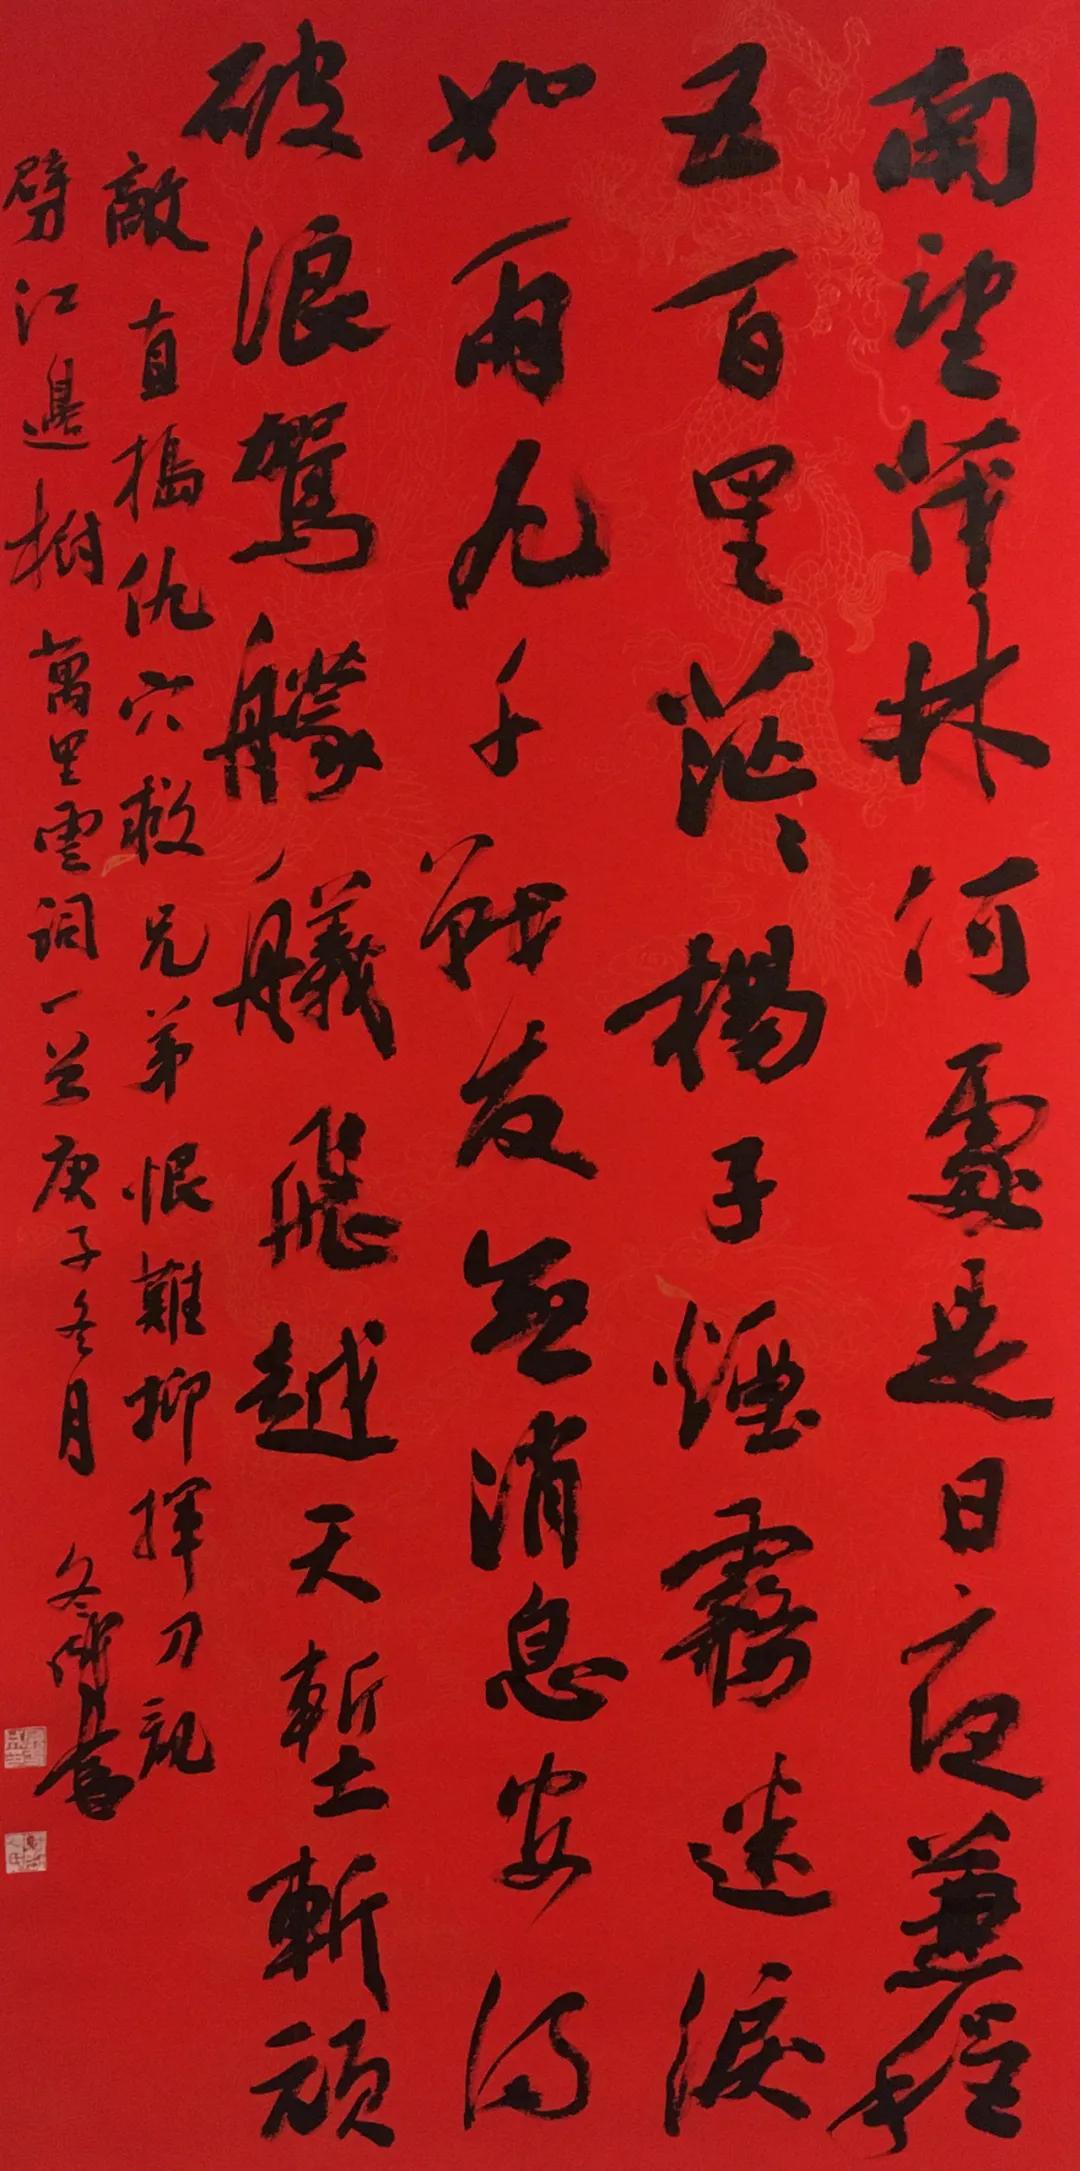 南望葦林何處是日夜兼程
五百里茫茫楊子煙霧迷淚
如雨九千戰友無消息安得
破浪駕艨艟飛越天塹斬頑
敵直搗仇穴救兄弟恨難抑揮刀亂
劈江邊樹萬里雲詞一首庚子冬月